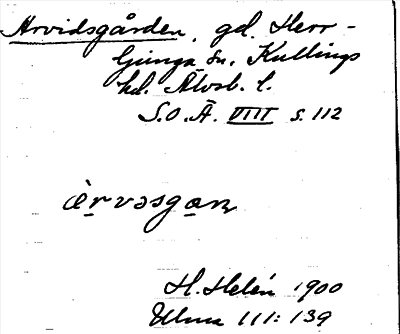 Arvidsgården, gd. Herr-
ljunga sn. Kullings
hd. Älvsb. l.
S.O.Ä. VIII s. 112
àrvəsgaṇ
H. Helén 1900
Ulma 111:139